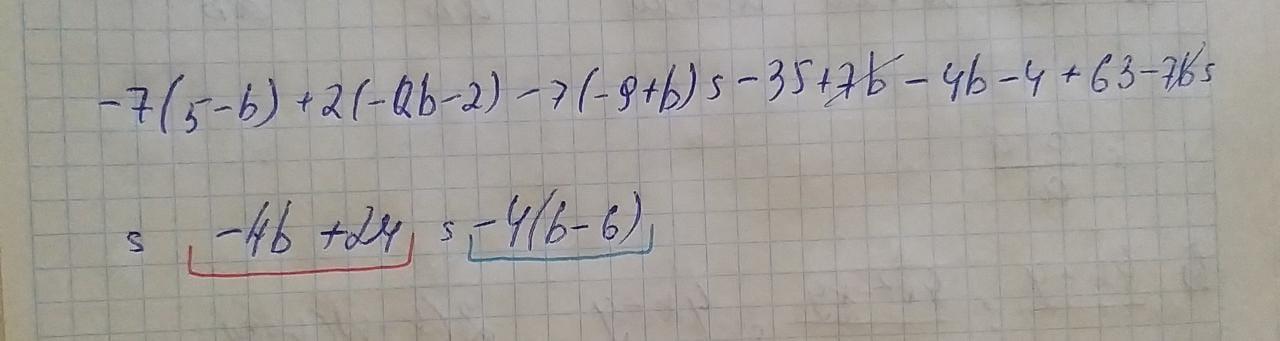 -7(5-b)+2(-2b-2)-7(-9+b)=-35+7b-4b-4+63-7b=
= -4b+24 = -4(b-6)